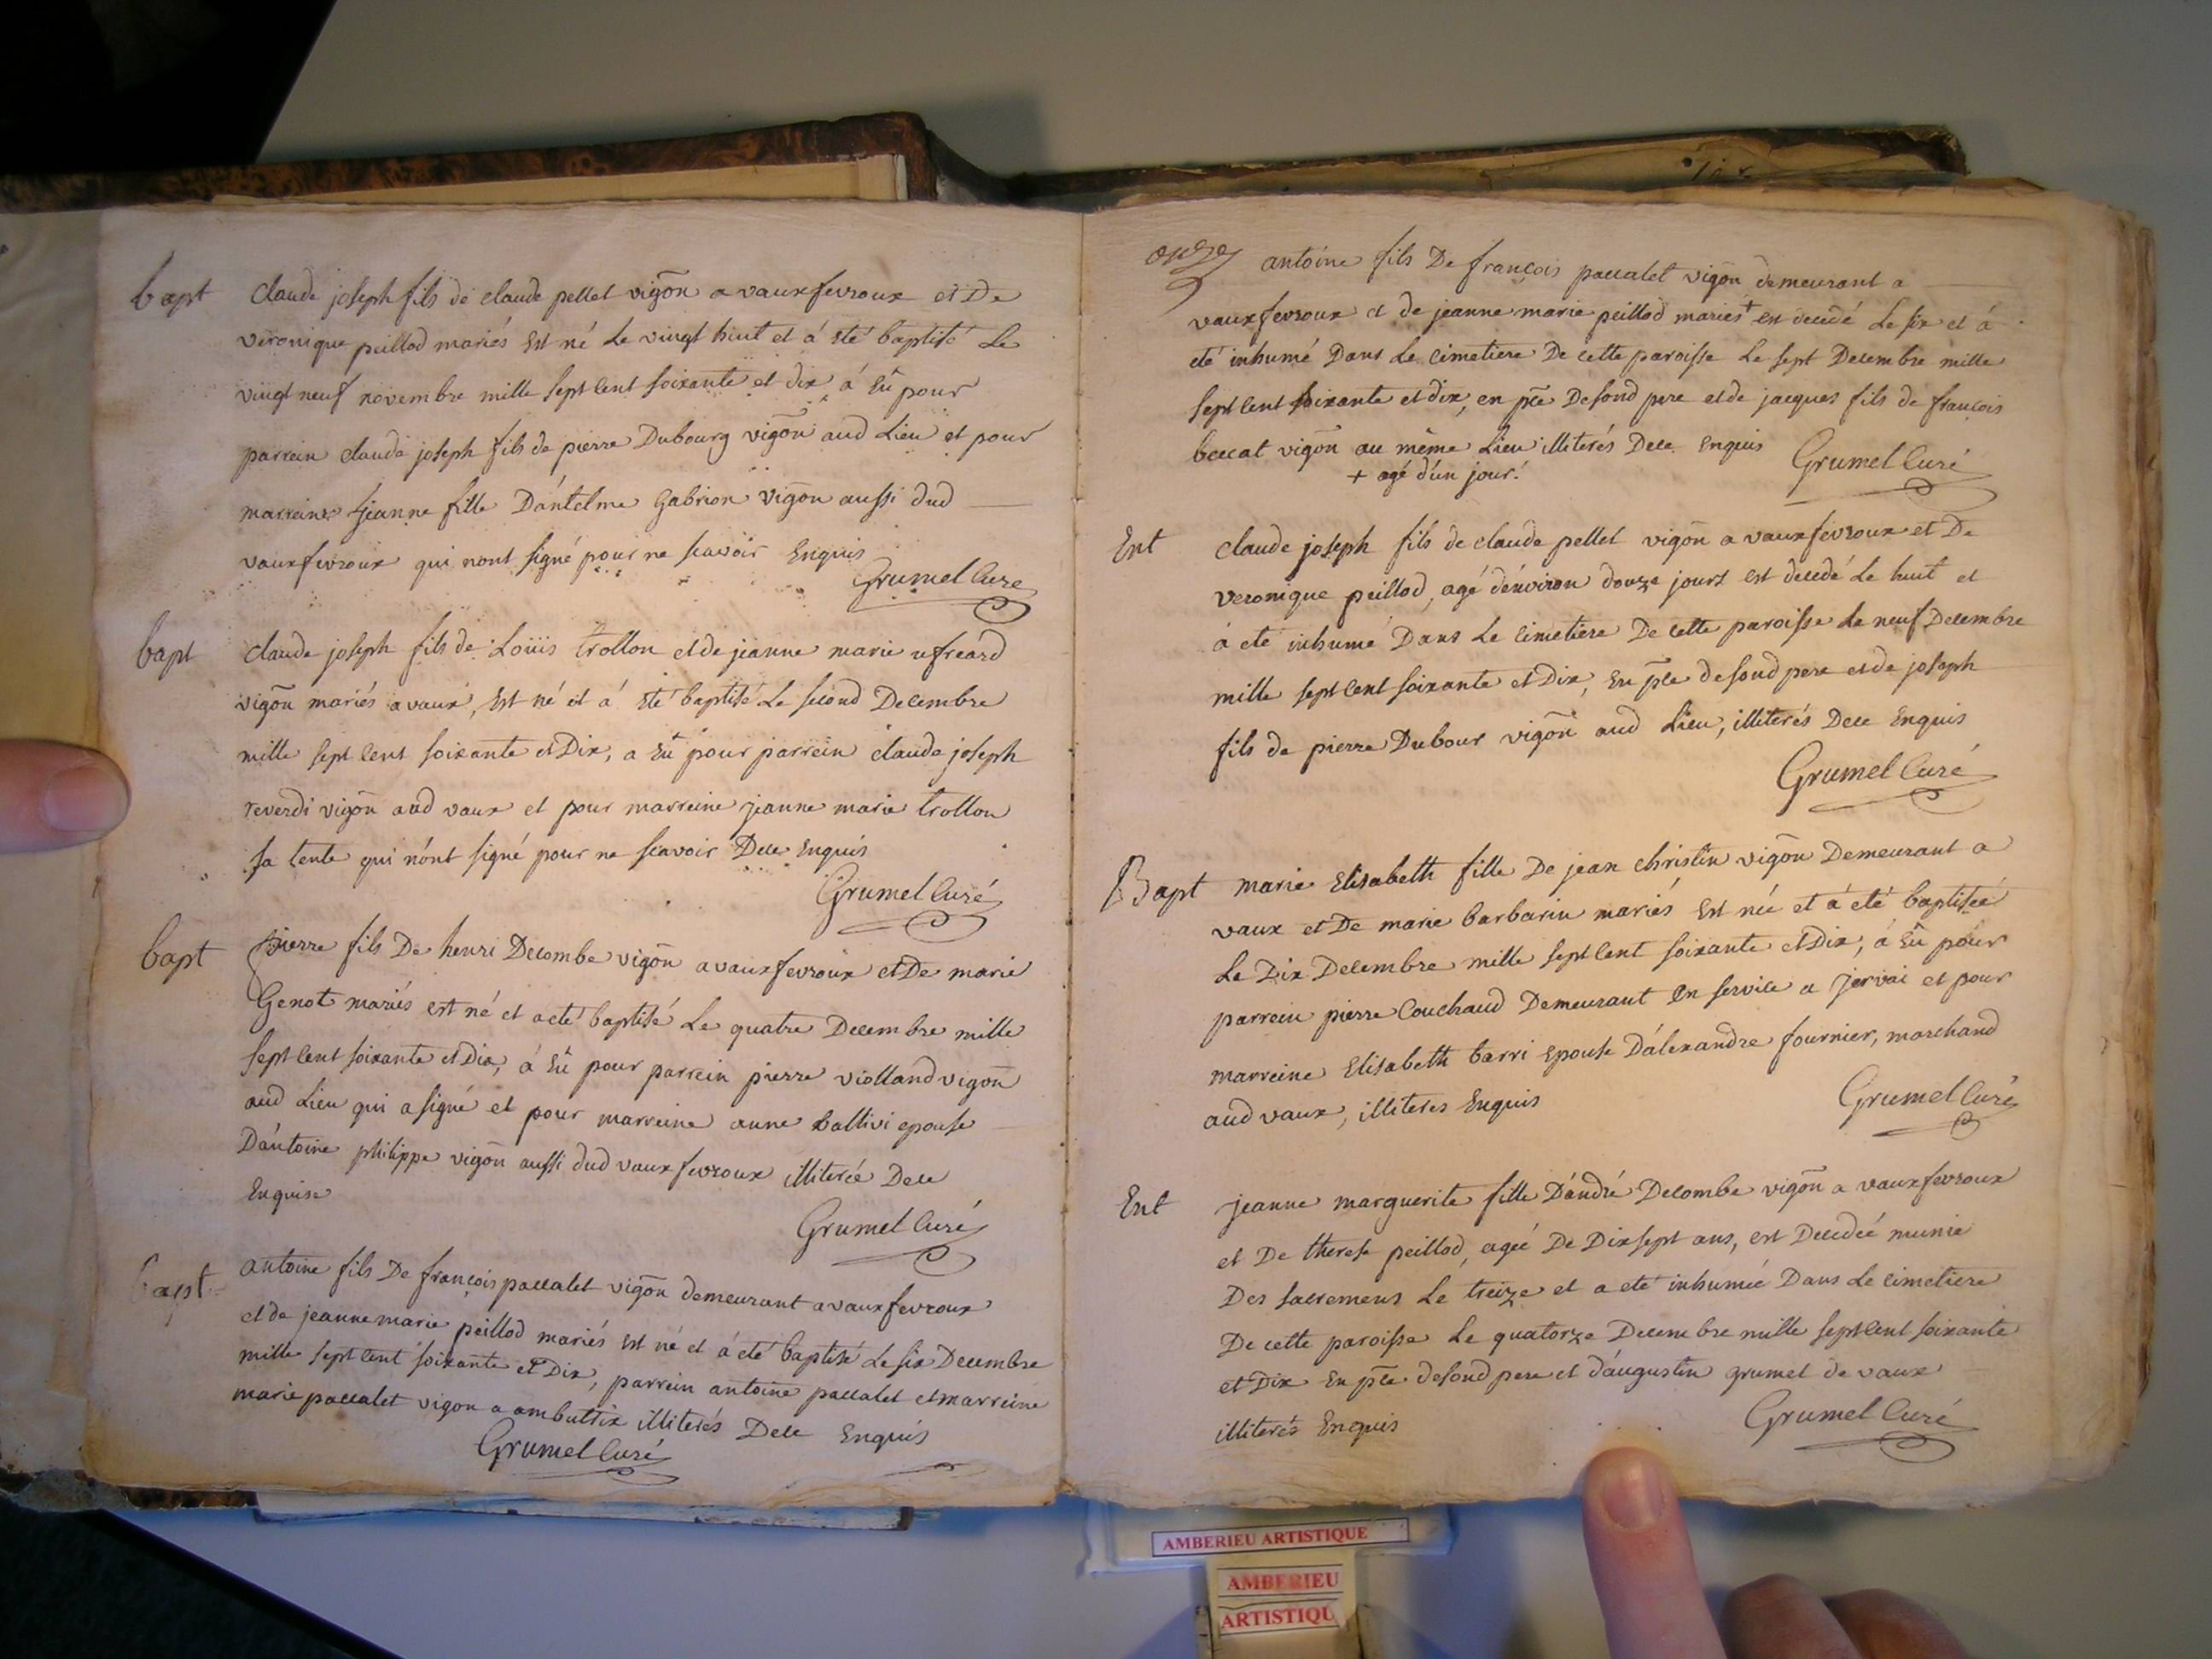 bapt claude joseph fils de claude pellet vigōn a vauxfevroux et De
veronique peillod mariés Est né Le vingt huit et á Eté baptisé Le
vingt neuf novembre mille sept Cent soixante et dix, á Eû pour
parrein claude joseph fils de pierre Dubourg vigōn aud Lieu et pour
marreine jeanne fille D'antelme Gabrion vigōn aussi dud
vauxfevroux qui nont signé pour ne scavoir Enquis
Grumel Curé
bapt claude joseph fils de Loüis trollon et de jeanne marie ufreard
vigōn mariés a vaux, Est né et á Eté baptisé Le second Decembre
mille sept Cent soixante et Dix, a Eû pour parrein claude joseph
reverdi vigōn aud vaux et pour marreine jeanne marie trollon
sa tente qui n'ont signé pour ne scavoir Dece Enquis
Grumel Curé
bapt pierre fils De henri Decombe vigōn a vauxfevroux et De marie
Genot mariés est né et a eté baptisé Le quatre Decembre mille
sept Cent soixante et Dix, á Eû pour parrein pierre violland vigōn
aud Lieu qui a signé et pour marreine anne ballivi epouse
D'antoine philippe vigōn aussi dud vauxfevroux illiterée Dece
Enquise
Grumel Curé
bapt antoine fils De françois paccalet vigōn demeurant a vauxfevroux
et de jeanne marie peillod mariés Est né et á eté baptisé Le six Decembre
mille sept Cent soixante et Dix, parrein antoine paccalet et marreine
marie paccalet vigon a ambutrix illiterés Dece Enquis
Grumel Curé
onze
antoine fils De françois paccalet vigōn demeurant a
vauxfevroux et de jeanne marie peillod mariés + est decedé Le six et á
eté inhumé Dans Le Cimetiere De Cette paroisse Le sept Decembre mille
sept Cent soixante et dix, en pce Desond pere et de jacques fils de françois
beccat vigōn au même Lieu illiterés Dece Enquis
+ agé d'un jour.
Grumel Curé
Ent claude joseph fils de claude pellet vigōn a vauxfevroux et De
veronique peillod, agé d'environ douze jours est decedé Le huit et
á eté inhumé Dans Le Cimetiere De Cette paroisse Le neuf Decembre
mille sept Cent soixante et Dix, En pce desond pere et de joseph
fils de pierre Dubour vigōn aud Lieu, illiterés Dece Enquis
Grumel Curé
Bapt marie Elisabeth fille De jean christin vigōn Demeurant a
vaux et De marie barbarin mariés Est née et á eté baptiseé
Le Dix Decembre mille sept Cent soixante et Dix, á Eû pour
parrein pierre Couchaud Demeurant En service a jervai et pour
marreine Elisabeth barri Epouse D'alexandre fournier, marchand
aud vaux, illiteres Enquis
Grumel Curé
Ent jeanne marguerite fille D'andré Decombe vigōn a vauxfevroux
et De therese peillod, ageé De Dix sept ans, est Decedeé munie
Des sacremens Le treize et a eté inhumeé Dans Le Cimetiere
De Cette paroisse Le quatorze Decembre mille sept Cent soixante
et Dix En pce desond pere et d'augustin grumet de vaux
illiterés Enquis
Grumel Curé
AMBERIEU ARTISTIQUE
AMBERIEU
ARTISTIQU